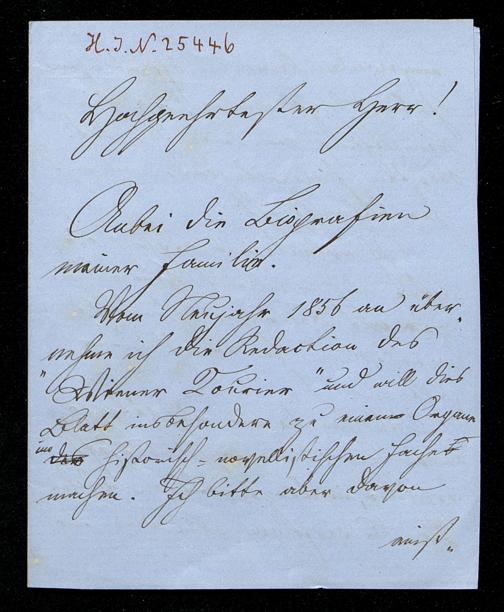 H. I. N. 25446
Hochgeehrtester Herr!
Anbei die Biografien
meiner Familie.
Vom Neujahr 1856 an über-
nehme ich die Redaction des
"Wiener Courier" und will dies
Blatt insbesondere zu einem Organe
im historisch-novellistischen Fache
machen. Ich bitte aber davon